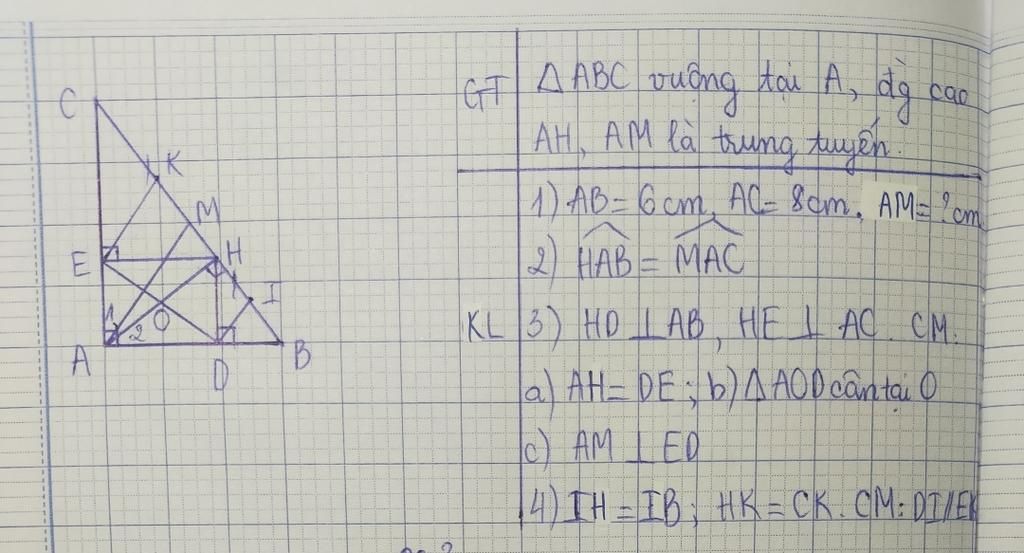 C
K
M
E
H
I
1
2
O
A
D
B
GT
ΔABC vuông tại A, đg cao
AH, AM là trung tuyến.
1) AB = 6cm, AC = 8cm, AM = ? cm
2) HAB = MAC
KL
3) HD ⊥ AB, HE ⊥ AC. CM:
a) AH = DE; b) ΔAOD cân tại O
c) AM ⊥ ED
4) IH = IB; HK = CK. CM: DI // EK